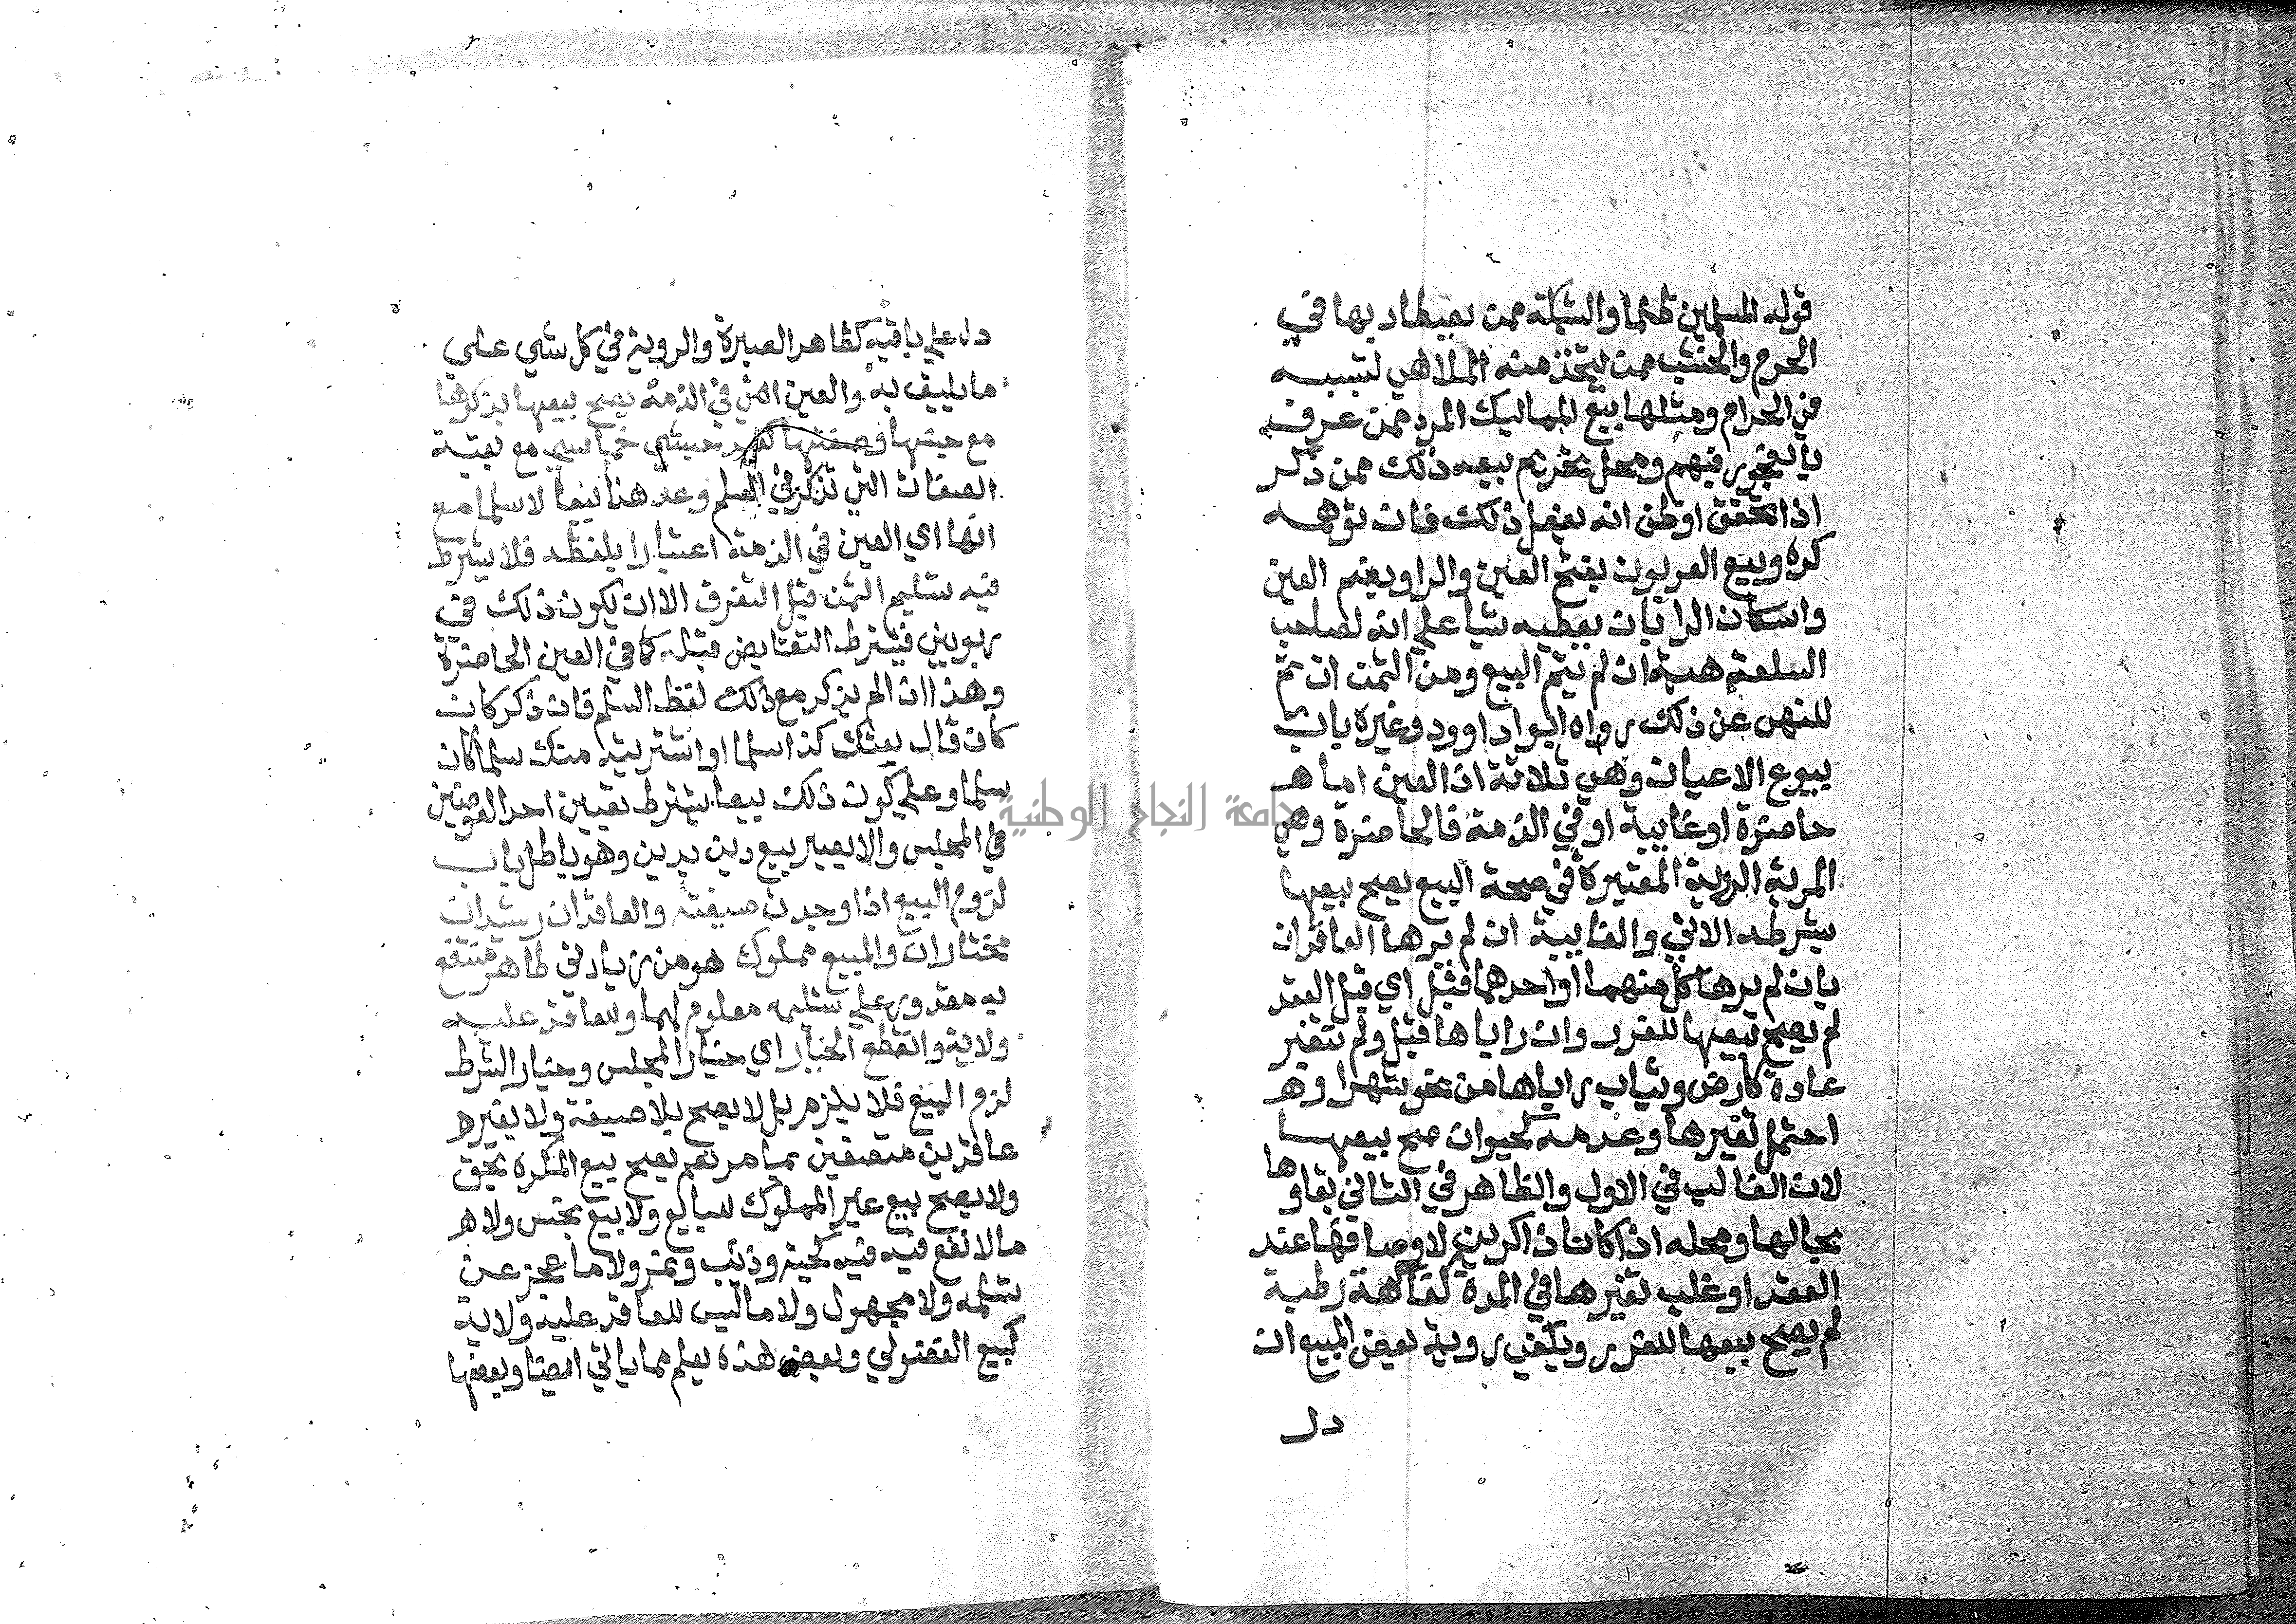 قوله المسلمين ظلما والشبكة ممن يصطاد بها في
الحرم والخشب ممن يتخذ منه الملاهي لتسببه
في الحرام ومثلها بيع المماليك المرد ممن عرف
بالفجور فيهم ومحل تحريم بيعه ذلك ممن ذكر
اذا تحقق او ظن انه يفعل ذلك فان توهمه
كره وبيع العربون بفتح العين والراو بضم العين
واسكان الرا بان يعطيه شيا علي انه لصاحب
السلعة هبة ان لم يتم البيع ومن الثمن ان تم
للنهي عن ذلك رواه ابو داوود وغيره باب
بيوع الاعيان وهي ثلاثة اذ العين اما هـ
حاضرة او غايبة او في الذمة فالحاضرة وهي
المرية الروية المعتبرة في صحة البيع يصح بيعها
بشرطه الاتي والغايبة ان لم يرها العاقدان
بان لم يرها كل منهما او احدهما قبل اي قبل العقد
لم يصح بيعها للغرر وان راياها قبل ولم تتغير
عادة كارض وثياب راياها من نحو شهرا وهـ
احتمل تغيرها وعدمه كحيوان صح بيعها
لان الغالب في الاول والظاهر في الثاني بقاوها
بحالها ومحله اذا كانا ذاكرين لاوصافها عند
العقد او غلب تغيرها في المدة كفاكهة رطبة
لم يصح بيعها للغرر ويكفي روية بعض المبيع ان
دل
دل علي باقيه كظاهر الصبرة والروية في كل شي علي
ما يليق به والعين التي في الذمة يصح بيعها بذكرها
مع جنسها وصفتها كعبد حبشي خماسي مع بقية
الصفات التي تذكر في السلم وعد هذا بيعا لا سلما مع
انها اي العين في الذمة اعتبارا بلفظه فلا يشترط
فيه تسليم الثمن قبل التفرق الا ان يكون ذلك في
ربويين فيشترط التقابض قبله كما في العين الحاضرة
وهذا ان لم يذكر مع ذلك لفظ السلم فان ذكر كان
كان قال بعتك كذا سلما او اشتريته منك سلما كان
سلما وعلي كون ذلك بيعا يشترط تعيين احد العوضين
في المجلس والا يصير بيع دين بدين وهو باطل باب
لزوم البيع اذا وجدت صيغته والعاقدان رشيدان
مختاران والمبيع مملوك هو من زيادتي طاهر منتفع
به مقدور علي تسلمه معلوم لهما وللعاقد عليه
ولاية وانقطع الخيار اي خيار المجلس وخيار الشرط
لزم البيع فلا يلزم بل لا يصح بلا صيغة ولا بغيره
عاقدين متصفين بما مر نعم يصح بيع المكره بحق
ولا يصح بيع غير المملوك للبايع ولا بيع نجس ولا هـ
ما لا نفع فيه فيه كحية وذئب ونمر ولا ما عجز عن
تسلمه ولا مجهول ولا ما ليس للعاقد عليه ولاية
كبيع الفضولي وبعض هذه يعلم مما ياتي ايضا وبعضها
جامعة النجاح الوطنية